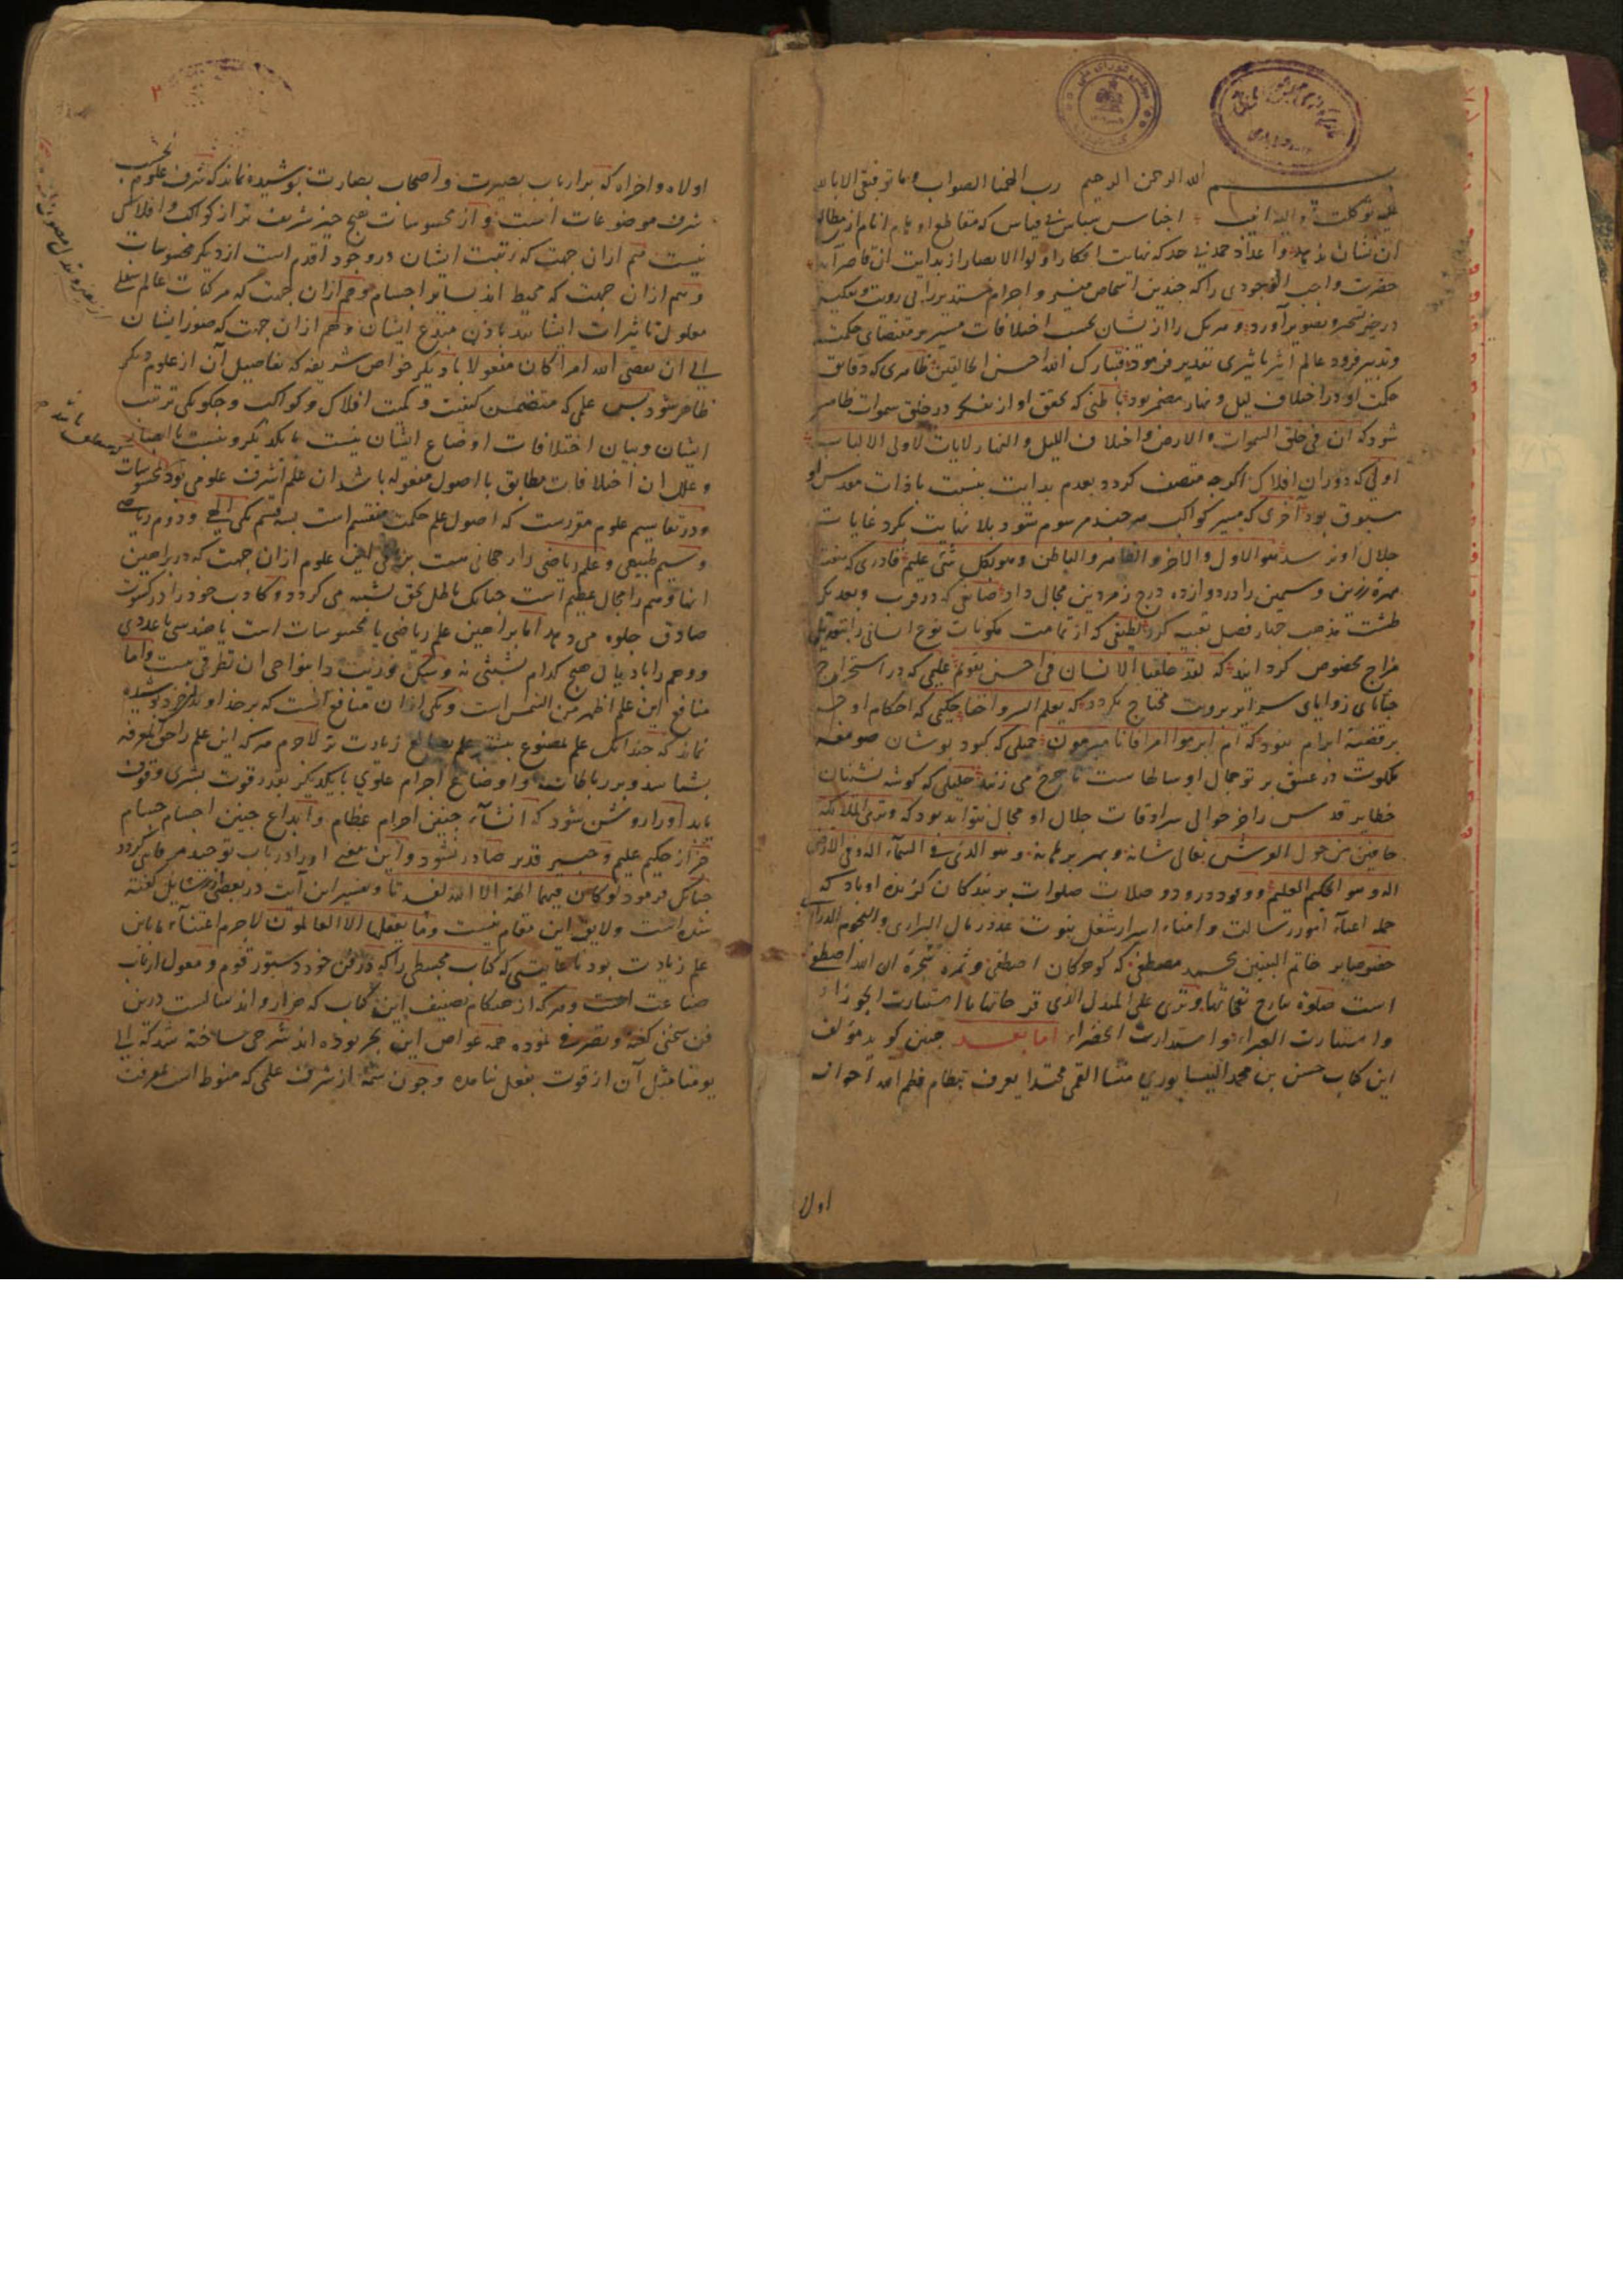 بسم الله الرحمن الرحیم رب الهمنا الصواب وما توفیقی الا بالله
علیه توکلت والیه انیب اجناس سپاس بی قیاس که مقاطع اوهام انام از مطالع
آن نشان ندهد واعداد حمد بی حد که نهایت افکار اولوا الابصار از بدایت آن قاصر آید
حضرت واجب الوجودی را که چندین اشخاص منیر و اجرام مستدیر را بی رویت و تفکیر
در حیز تسخیر وتصویر آورد و هر یک را از یشان بحسب اختلافات مسیر بر مقتضای حکمت
وتدبیر فرود عالم اثیر تاثیری تقدیر فرمود فتبارک الله احسن الخالقین ظاهری که دقایق
حکمت او در اختلاف لیل و نهار مضمر بود باطنی که تحقق او از تفکر در خلق سموات ظاهر
شود که ان فی خلق السموات والارض واختلاف اللیل والنهار لایات لاولی الالباب
اولی که دوران افلاک اکرچه متصف کردد بعدم بدایت بنسبت با ذات مقدس او
مسبوق بود آخری که مسیر کواکب هر چند مرسوم شود بلا نهایت بکرد غایات
جلال او نرسد هو الاول والاخر والظاهر والباطن وهو بکل شیء علیم قادری که هفت
مهره زرین وسیمین را در دوازده درج زمردین مجال داد صانعی که در قرب وبعد یک
طشت مذهب چهار فصل تعبیه کرد لطیفی که از تمامت مکونات نوع انسانی را بتعدیل
مزاج مخصوص کردانید که لقد خلقنا الانسان فی احسن تقویم علیمی که در استخراج
خبایای زوایای سرایر برویت محتاج نکردد که یعلم السر واخفی حکیمی که احکام او جز
بر قضیه ابرام نبود که ام ابرموا امرا فانا مبرمون جمیلی که کبود پوشان صومعه
ملکوت در عشق پرتو جمال او سالهاست تا چرخ می زنند جلیلی که کوشه نشینان
خطایر قدس را جز حوالی سرادقات جلال او مجال نتواند بود که وتری الملائکة
حافین من حول العرش تعالی شانه وبهر برهانه وهو الذی فی السماء اله وفی الارض
اله وهو الحکیم العلیم و وفود درود و صلات صلوات بر بندکان کزیده او باد که
حمله اعباء امور رسالت وامناء اسرار شغل نبوت عدد رمال البراری والنجوم الدراری
خصوصا بر خاتم النبیین محمد مصطفی که کوهر کان اصطفی وثمره شجره ان الله اصطفی
است صلوة
واستنارت الغبراء واستدارت الخضراء اما بعد چنین کوید مؤلف
این کتاب حسن بن محمد النیسابوری منشا القمی محتدا یعرف بنظام نظم الله احواله
اولا
اولاه واخراه که بر ارباب بصیرت واصحاب بصارت پوشیده نماند که شرف علوم بحسب
شرف موضوعات است و از محسوسات هیچ چیز شریف تر از کواکب وافلاک
نیست هم ازان جهت که رتبت ایشان در وجود اقدم است از دیکر محسوسات
وهم ازان جهت که محیط اند بسایر اجسام وهم ازان جهت که مرکبات عالم سفلی
معلول تاثیرات ایشانند باذن مبدع ایشان وهم ازان جهت که صور ایشان
الی ان یقضی الله امرا کان مفعولا با دیکر خواص شریفه که تفاصیل آن از علوم دیکر
ظاهر شود پس علمی که متضمن کیفیت وکمیت افلاک وکواکب وچکونکی ترتیب
ایشان وبیان اختلافات اوضاع ایشان بنسبت با یکدیکر وبنسبت با ابصار
وعلل ان اختلافات مطابق با اصول منقوله باشد ان علم اشرف علومی بود
ودر تقاسیم علوم مقررست که اصول علم حکمت منقسم است بسه قسم یکی الهی ودوم ریاضی
وسیم طبیعی وعلم ریاضی را رجحانی هست بر باقی این علوم ازان جهت که در براهین
انها وهم را مجال عظیم است چنانک باطل بحق مشتبه می کردد وکاذب خود را در کسوت
صادق جلوه می دهد اما براهین علم ریاضی یا محسوسات است یا هندسی یا عددی
ووهم را
منافع این علم اظهر من الشمس است ویکی ازان منافع آنست که بر خداوند خرد پوشیده
نماند که چندانک علم بمصنوع بیشتر علم بصانع زیادت تر لاجرم هر که این علم را حق المعرفه
بشناسد وبر رباطات واوضاع اجرام علوی با یکدیکر بقدر قوت بشری وقوف
یابد او را روشن شود که انشاء چنین اجرام عظام وابداع چنین اجسام جسام
جز از حکیم علیم وخبیر قدیر صادر نشود واین معنی او را در باب توحید
چنانک فرمود لو کان فیهما الهة الا الله لفسدتا وتفسیر این آیت در بعضی رسایل کفته
شده است ولایق این مقام نیست وما یعقلها الا العالمون لاجرم اعتناء ما باین
علم زیادت بود تا غایتی که کتاب مجسطی را که در فن خود دستور قوم ومعول ارباب
صناعت است وهر که از هنکام تصنیف این کتاب که هزار واند سالست درین
فن سخنی کفته وتصرفی نموده همه غواص این بحر بوده اند شرحی ساخته شد که الی
یومنا مثل آن از قوت بفعل نیامده وچون شمه از شرف علمی که منوط است بمعرفت